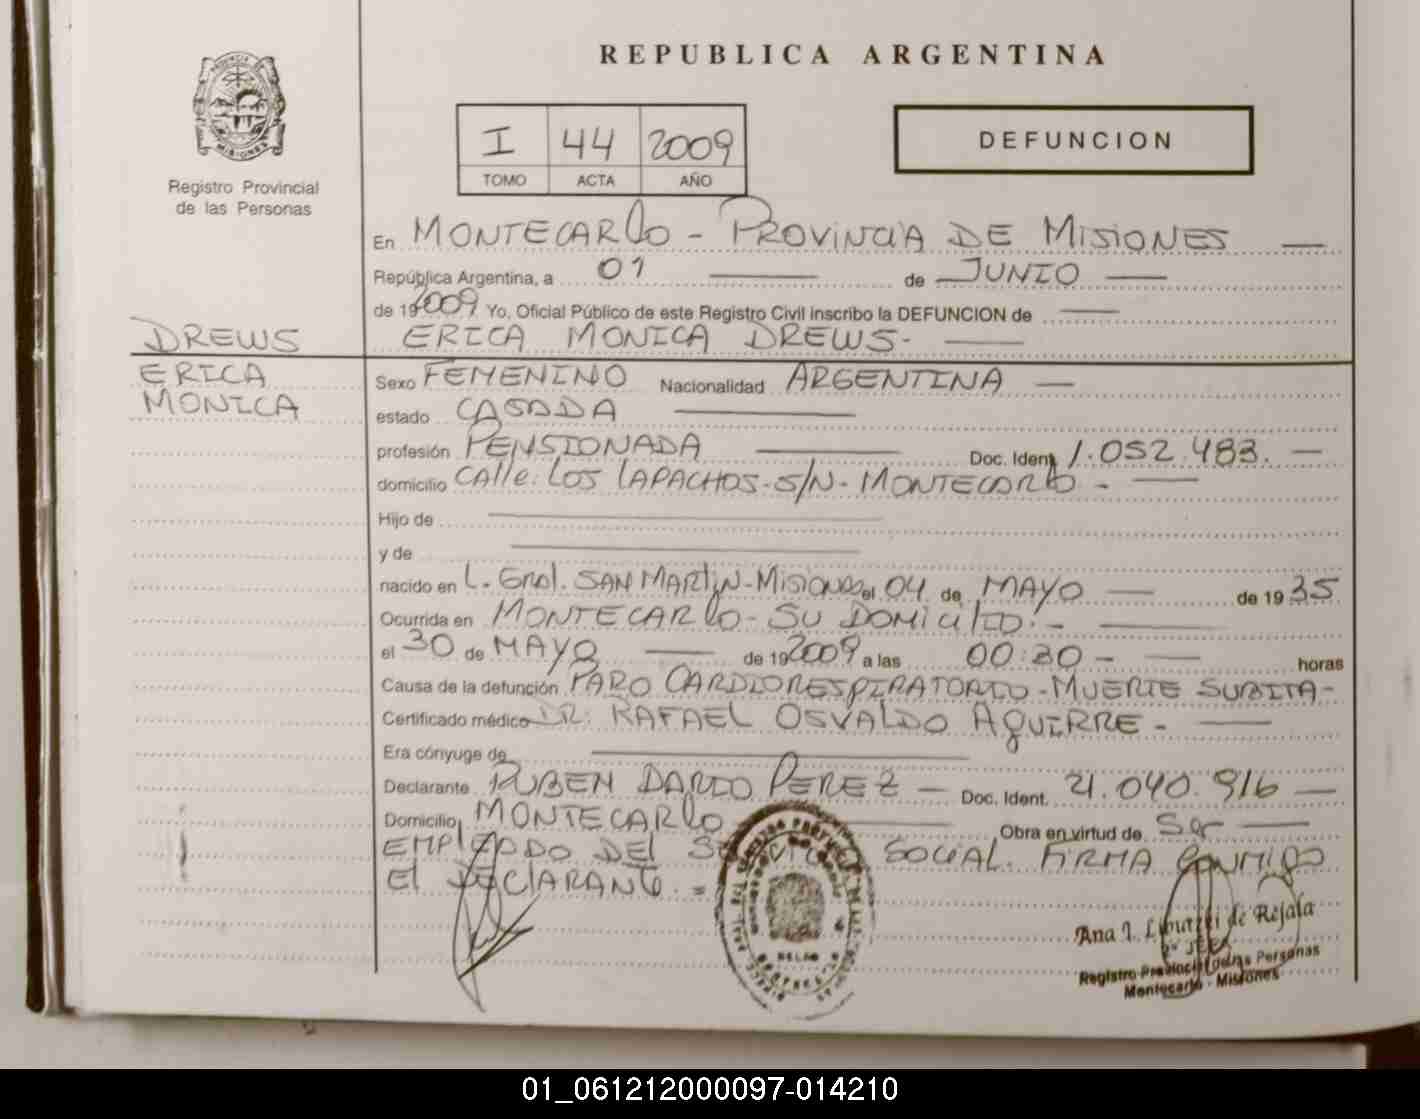 REPUBLICA ARGENTINA
PROVINCIA DE
MISIONES
Registro Provincial
de las Personas
I 44 2009
TOMO ACTA AÑO
DEFUNCION
En MONTECARLO - PROVINCIA DE MISIONES —
República Argentina, a 01 — de JUNIO —
de 192009 Yo, Oficial Público de este Registro Civil inscribo la DEFUNCION de —
DREWS
ERICA MONICA DREWS. —
ERICA
MONICA
Sexo FEMENINO Nacionalidad ARGENTINA —
estado CASADA —
profesión PENSIONADA — Doc. Ident. 1.052.483. —
domicilio CAlle. LOS LAPACHOS - S/N - MONTECARLO - —
Hijo de —
y de —
nacido en L. Gral. SAN MARTIN - Misiones el 04 de MAYO — de 19 35
Ocurrida en MONTECARLO - SU DOMICILIO. - —
el 30 de MAYO — de 192009 a las 00:30 - — horas
Causa de la defunción PARO CARDIORESPIRATORIO - MUERTE SUBITA -
Certificado médico DR: RAFAEL OSVALDO AGUIRRE - —
Era cónyuge de —
Declarante RUBEN DARIO PEREZ — Doc. Ident. 21.040.916 —
Domicilio MONTECARLO — Obra en virtud de Ser —
EMPLEADO DEL SERVICIO SOCIAL. FIRMA CONMIGO
El DECLARANTE. =
Ana I. de Rejala
Registro Provincial de las Personas
Montecarlo - Misiones
01_061212000097-014210